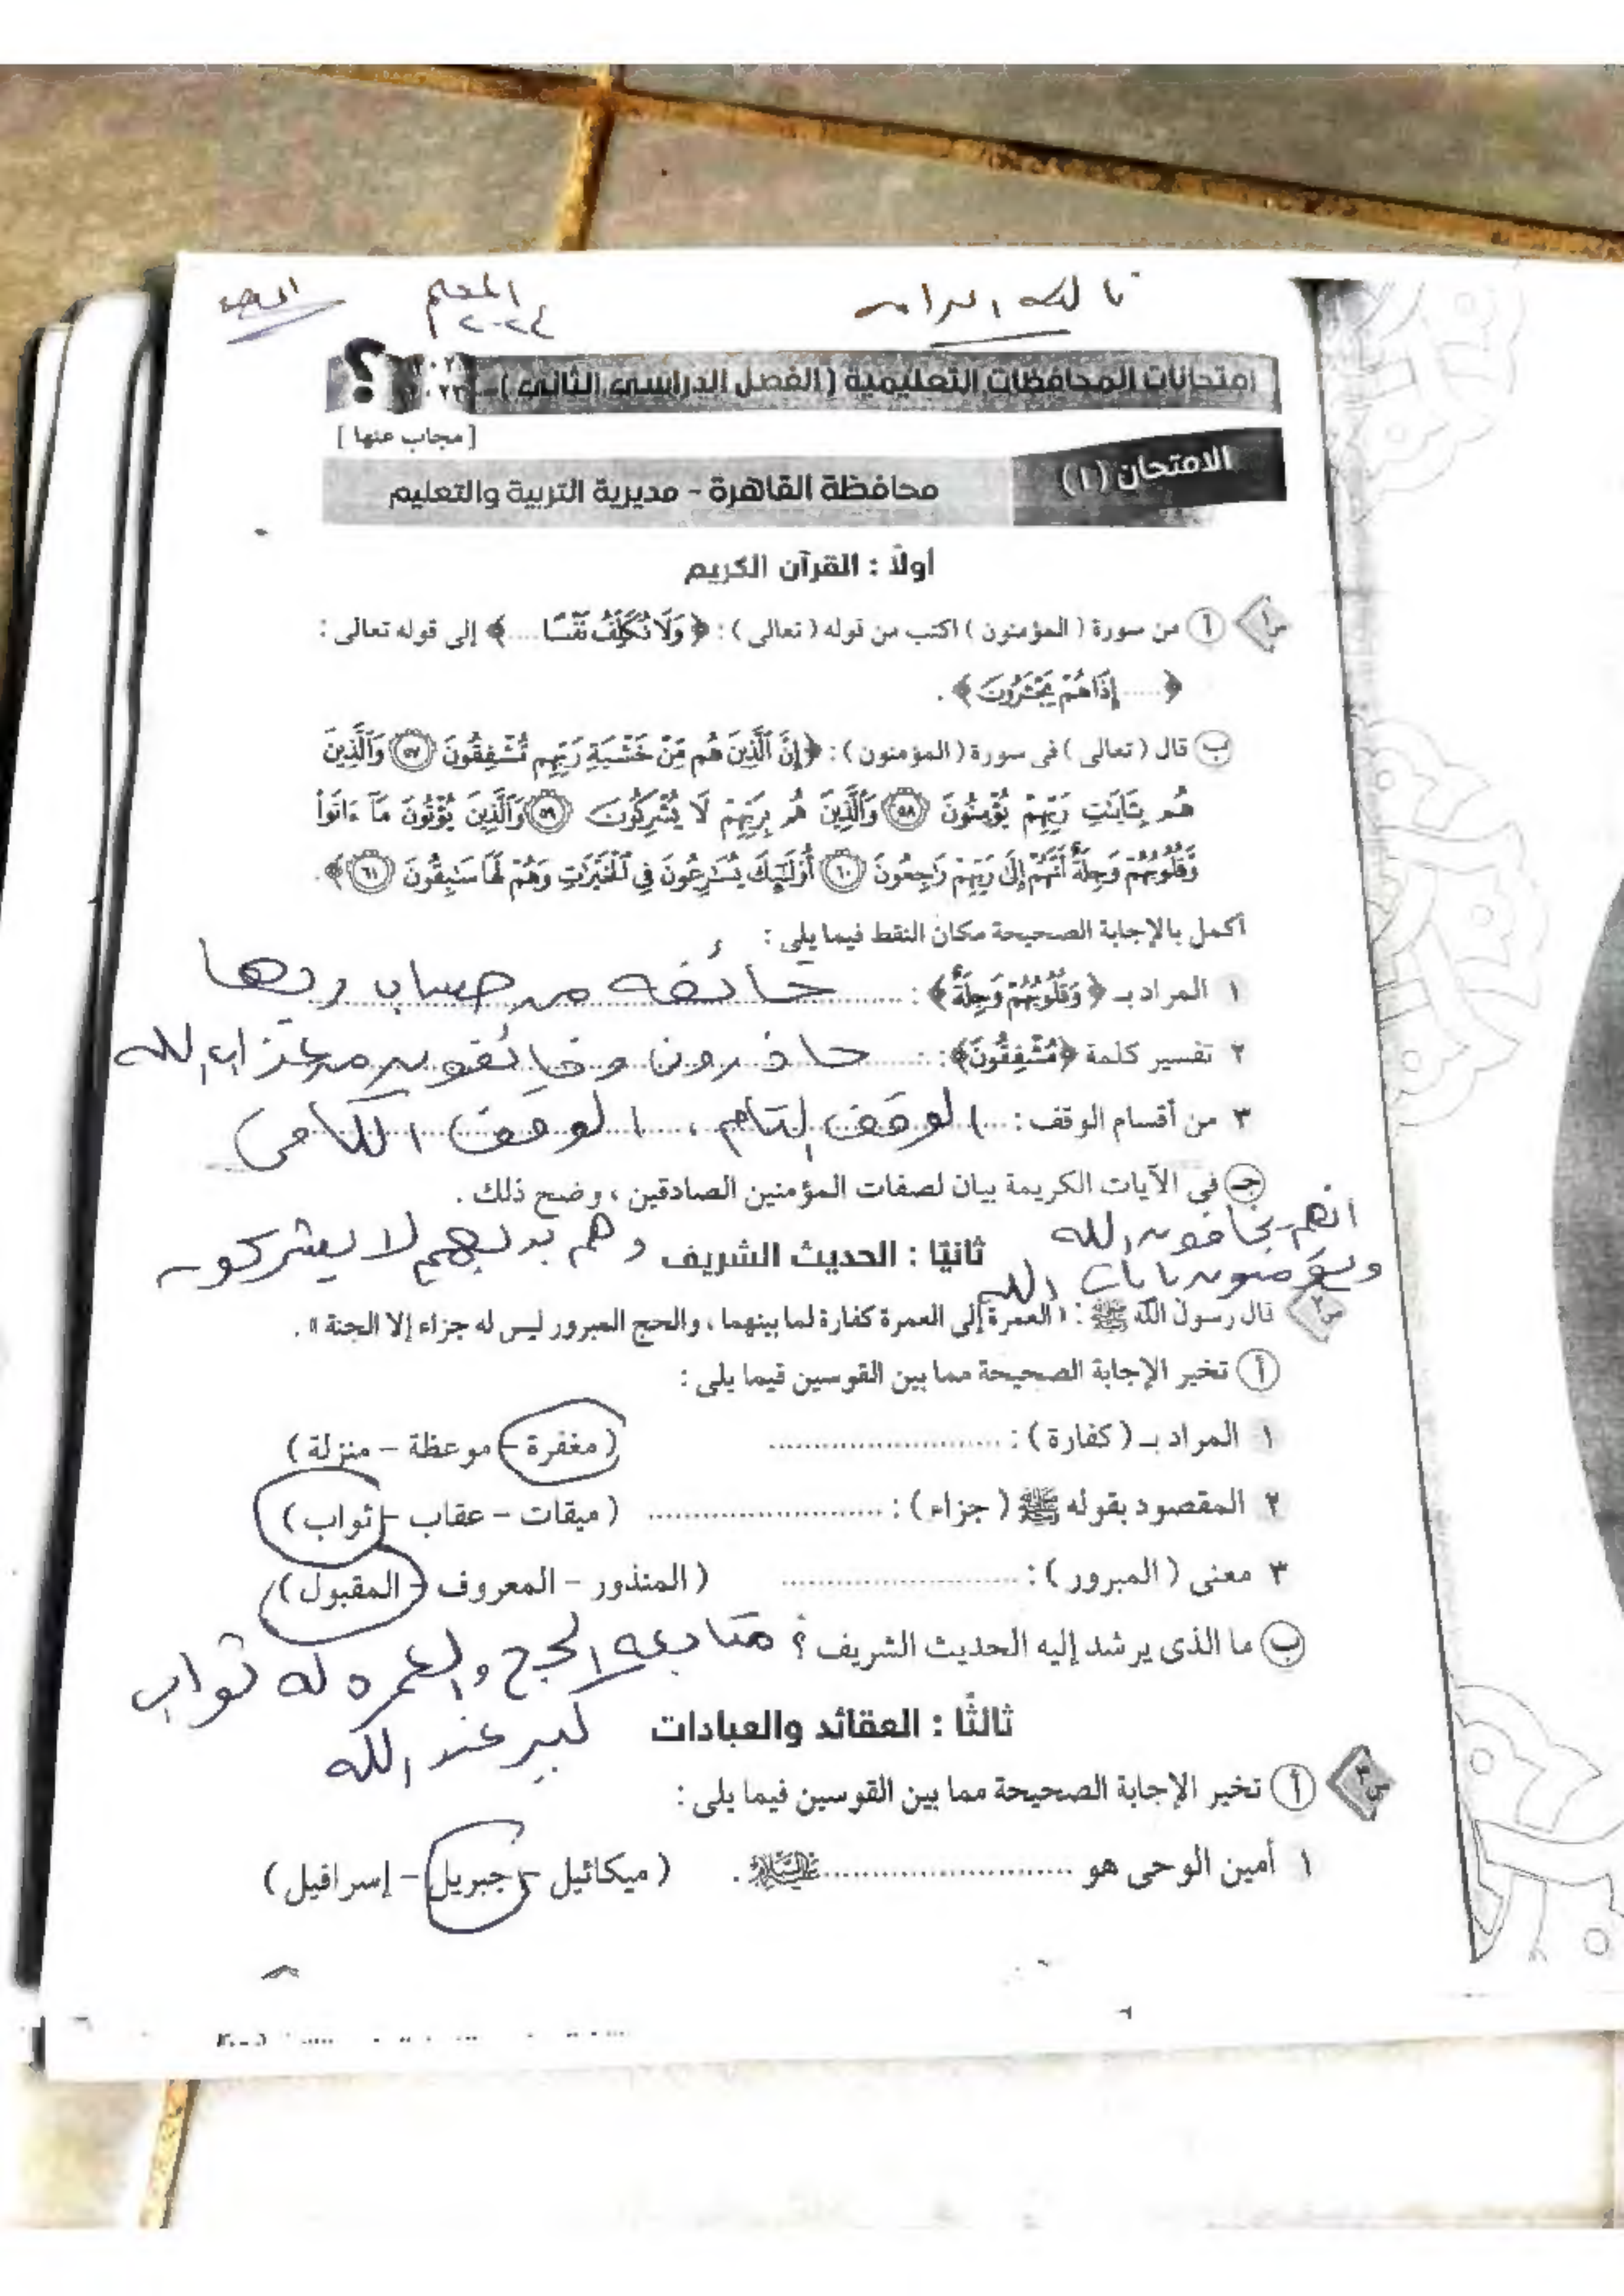 المعلم
٢٠٢٤
امتحانات المحافظات التعليمية (الفصل الدراسى الثانى)
[مجاب عنها]
الامتحان (١)
محافظة القاهرة - مديرية التربية والتعليم
أولاً : القرآن الكريم
س١ أ من سورة (المؤمنون) اكتب من قوله (تعالى) : ﴿وَلَا نُكَلِّفُ نَفْسًا ....﴾ إلى قوله تعالى :
﴿..... إِذَا هُمْ يَجْـَٔرُونَ﴾ .
ب قال (تعالى) فى سورة (المؤمنون) : ﴿إِنَّ الَّذِينَ هُم مِّنْ خَشْيَةِ رَبِّهِم مُّشْفِقُونَ ٥٧ وَالَّذِينَ
هُم بِـَٔايَٰتِ رَبِّهِمْ يُؤْمِنُونَ ٥٨ وَالَّذِينَ هُم بِرَبِّهِمْ لَا يُشْرِكُونَ ٥٩ وَالَّذِينَ يُؤْتُونَ مَآ ءَاتَوا۟
وَّقُلُوبُهُمْ وَجِلَةٌ أَنَّهُمْ إِلَىٰ رَبِّهِمْ رَٰجِعُونَ ٦٠ أُو۟لَٰٓئِكَ يُسَٰرِعُونَ فِى الْخَيْرَٰتِ وَهُمْ لَهَا سَٰبِقُونَ ٦١﴾ .
أكمل بالإجابة الصحيحة مكان النقط فيما يلى :
١ المراد بـ ﴿وَّقُلُوبُهُمْ وَجِلَةٌ﴾ : خائفة من حساب ربها
٢ تفسير كلمة ﴿مُّشْفِقُونَ﴾ : حاذرون وخائفون من عذاب الله
٣ من أقسام الوقف : الوقف التام ، الوقف الكافى
جـ فى الآيات الكريمة بيان لصفات المؤمنين الصادقين ، وضح ذلك .
انهم يخافون الله
ويؤمنون بايات الله
وهم بربهم لا يشركون
ثانيًا : الحديث الشريف
س٢ قال رسول الله ﷺ : «العمرة إلى العمرة كفارة لما بينهما ، والحج المبرور ليس له جزاء إلا الجنة» .
أ تخير الإجابة الصحيحة مما بين القوسين فيما يلى :
١ المراد بـ (كفارة) : ........................ (مغفرة - موعظة - منزلة)
٢ المقصود بقوله ﷺ (جزاء) : ........................ (ميقات - عقاب - ثواب)
٣ معنى (المبرور) : ........................ (المنذور - المعروف - المقبول)
ب ما الذى يرشد إليه الحديث الشريف ؟ متابعة الحج والعمرة له ثواب
كبير عند الله
ثالثًا : العقائد والعبادات
س٣ أ تخير الإجابة الصحيحة مما بين القوسين فيما يلى :
١ أمين الوحى هو ........................ عليه السلام . (ميكائيل - جبريل - إسرافيل)